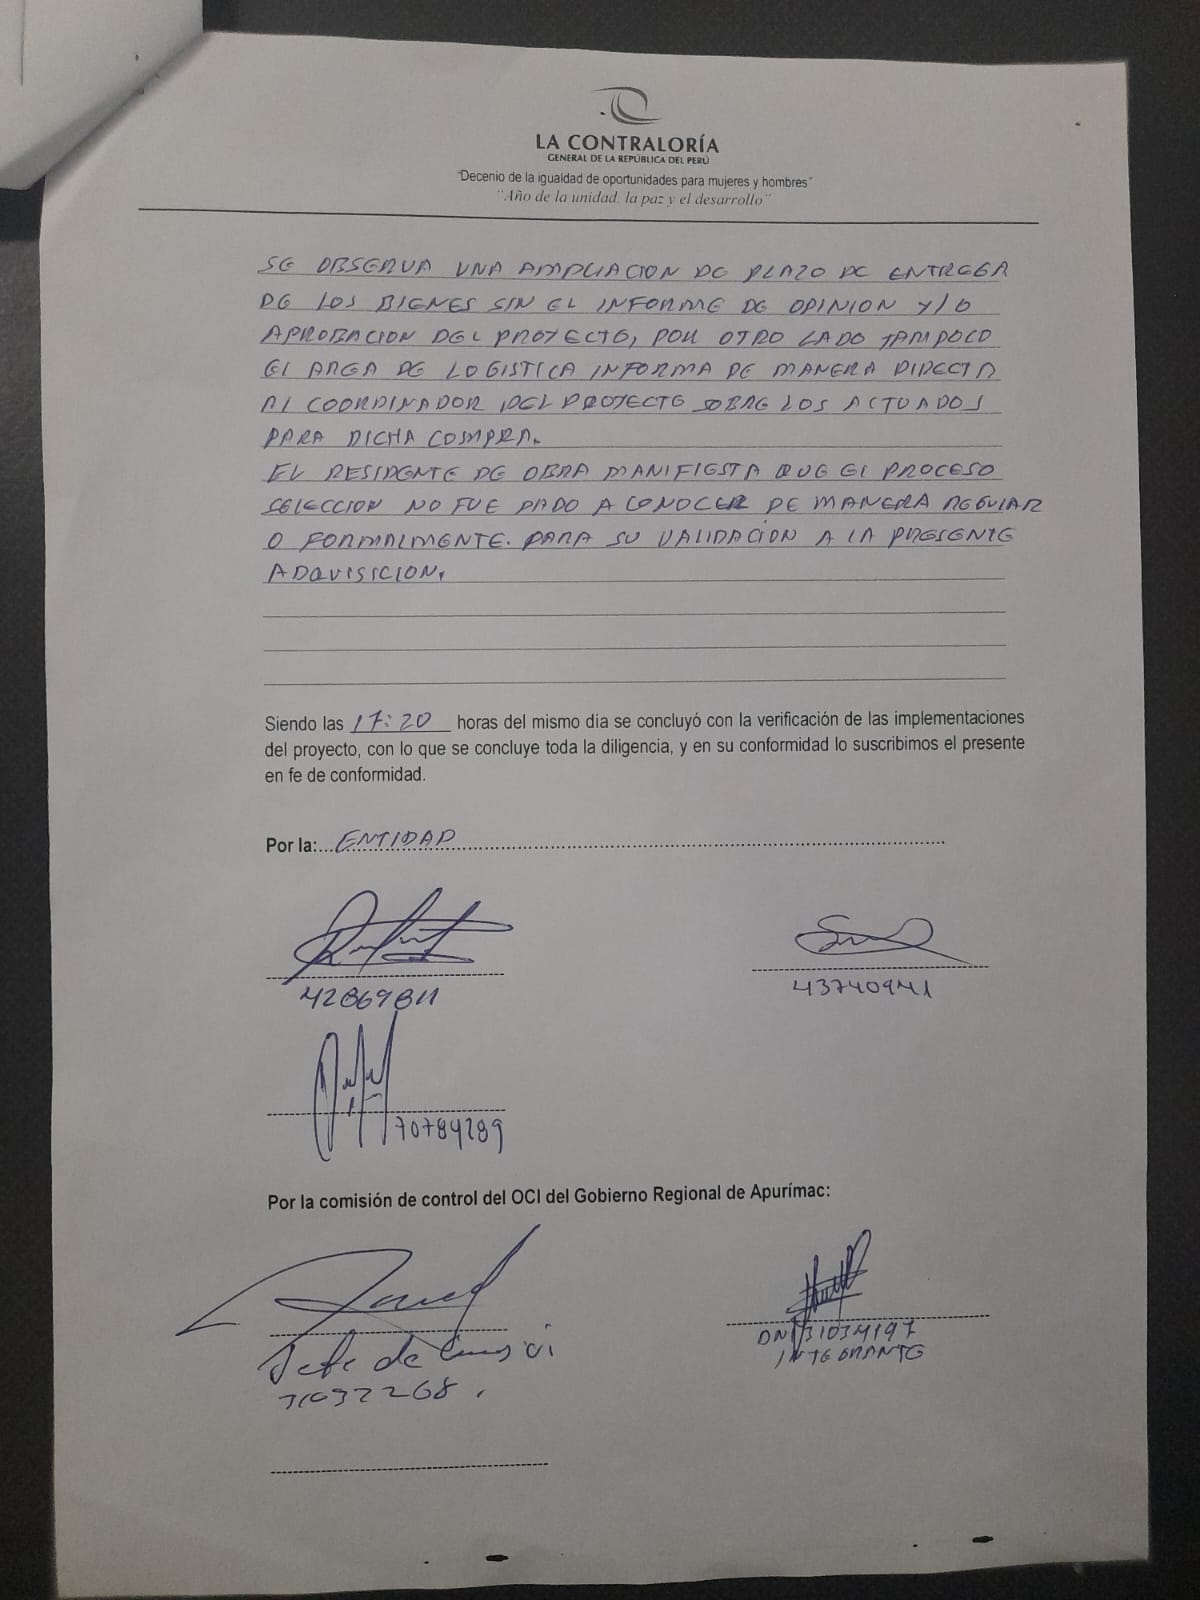 LA CONTRALORÍA
GENERAL DE LA REPÚBLICA DEL PERÚ
"Decenio de la igualdad de oportunidades para mujeres y hombres"
"Año de la unidad, la paz y el desarrollo"
SE OBSERVA UNA AMPLIACION DE PLAZO DE ENTREGA
DE LOS BIENES SIN EL INFORME DE OPINION Y/O
APROBACION DEL PROYECTO, POR OTRO LADO TAMPOCO
EL AREA DE LOGISTICA INFORMA DE MANERA DIRECTA
AL COORDINADOR DEL PROYECTO SOBRE LOS ACTUADOS
PARA DICHA COMPRA.
EL RESIDENTE DE OBRA MANIFIESTA QUE EL PROCESO
SELECCION NO FUE DADO A CONOCER DE MANERA REGULAR
O FORMALMENTE. PARA SU VALIDACION A LA PRESENTE
ADQUISICION.
Siendo las 17:20 horas del mismo día se concluyó con la verificación de las implementaciones
del proyecto, con lo que se concluye toda la diligencia, y en su conformidad lo suscribimos el presente
en fe de conformidad.
Por la: ENTIDAD
42869811 43740941
70784289
Por la comisión de control del OCI del Gobierno Regional de Apurímac:
DNI 31034197
Jefe de
INTEGRANTE